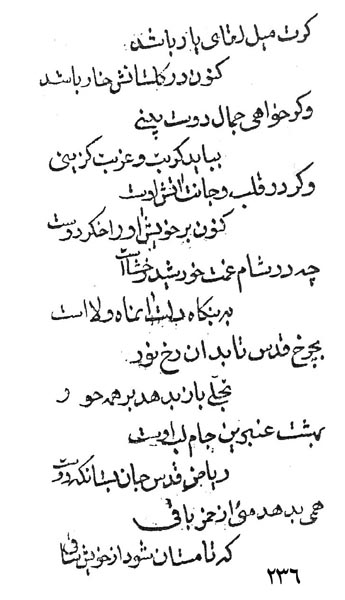 کرت میل لقای یار باشد
کنون در کلستانش خار باشد
وکر خواهی جمال دوست بینی
بباید کربت و غربت کزینی
وکر در قلب و جانت آتش اوست
کنون بر خویش او را خکر دوست
چه در شام غمت خورشید رخشاست
به بنکاه دلت آن ماه ولا است
بچرخ قدس تابد ان رخ نور
تجلی باز بدهد بر همه حور
بهشت عنبرین جام لب اوست
ریاض قدس جان بستانکه دوست
همی بدهد می از خمر باقی
که تا مستان شود از خویش ساقی
۲۳۶